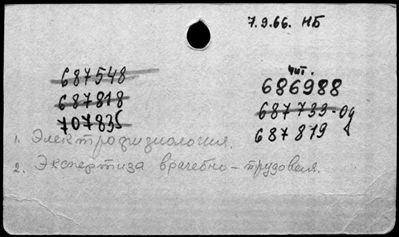 7.9.66. НБ
687548
687818
707835
чит.
686988
687733-од
687879
1. Электрофизиология.
2. Экспертиза врачебно-трудовая.